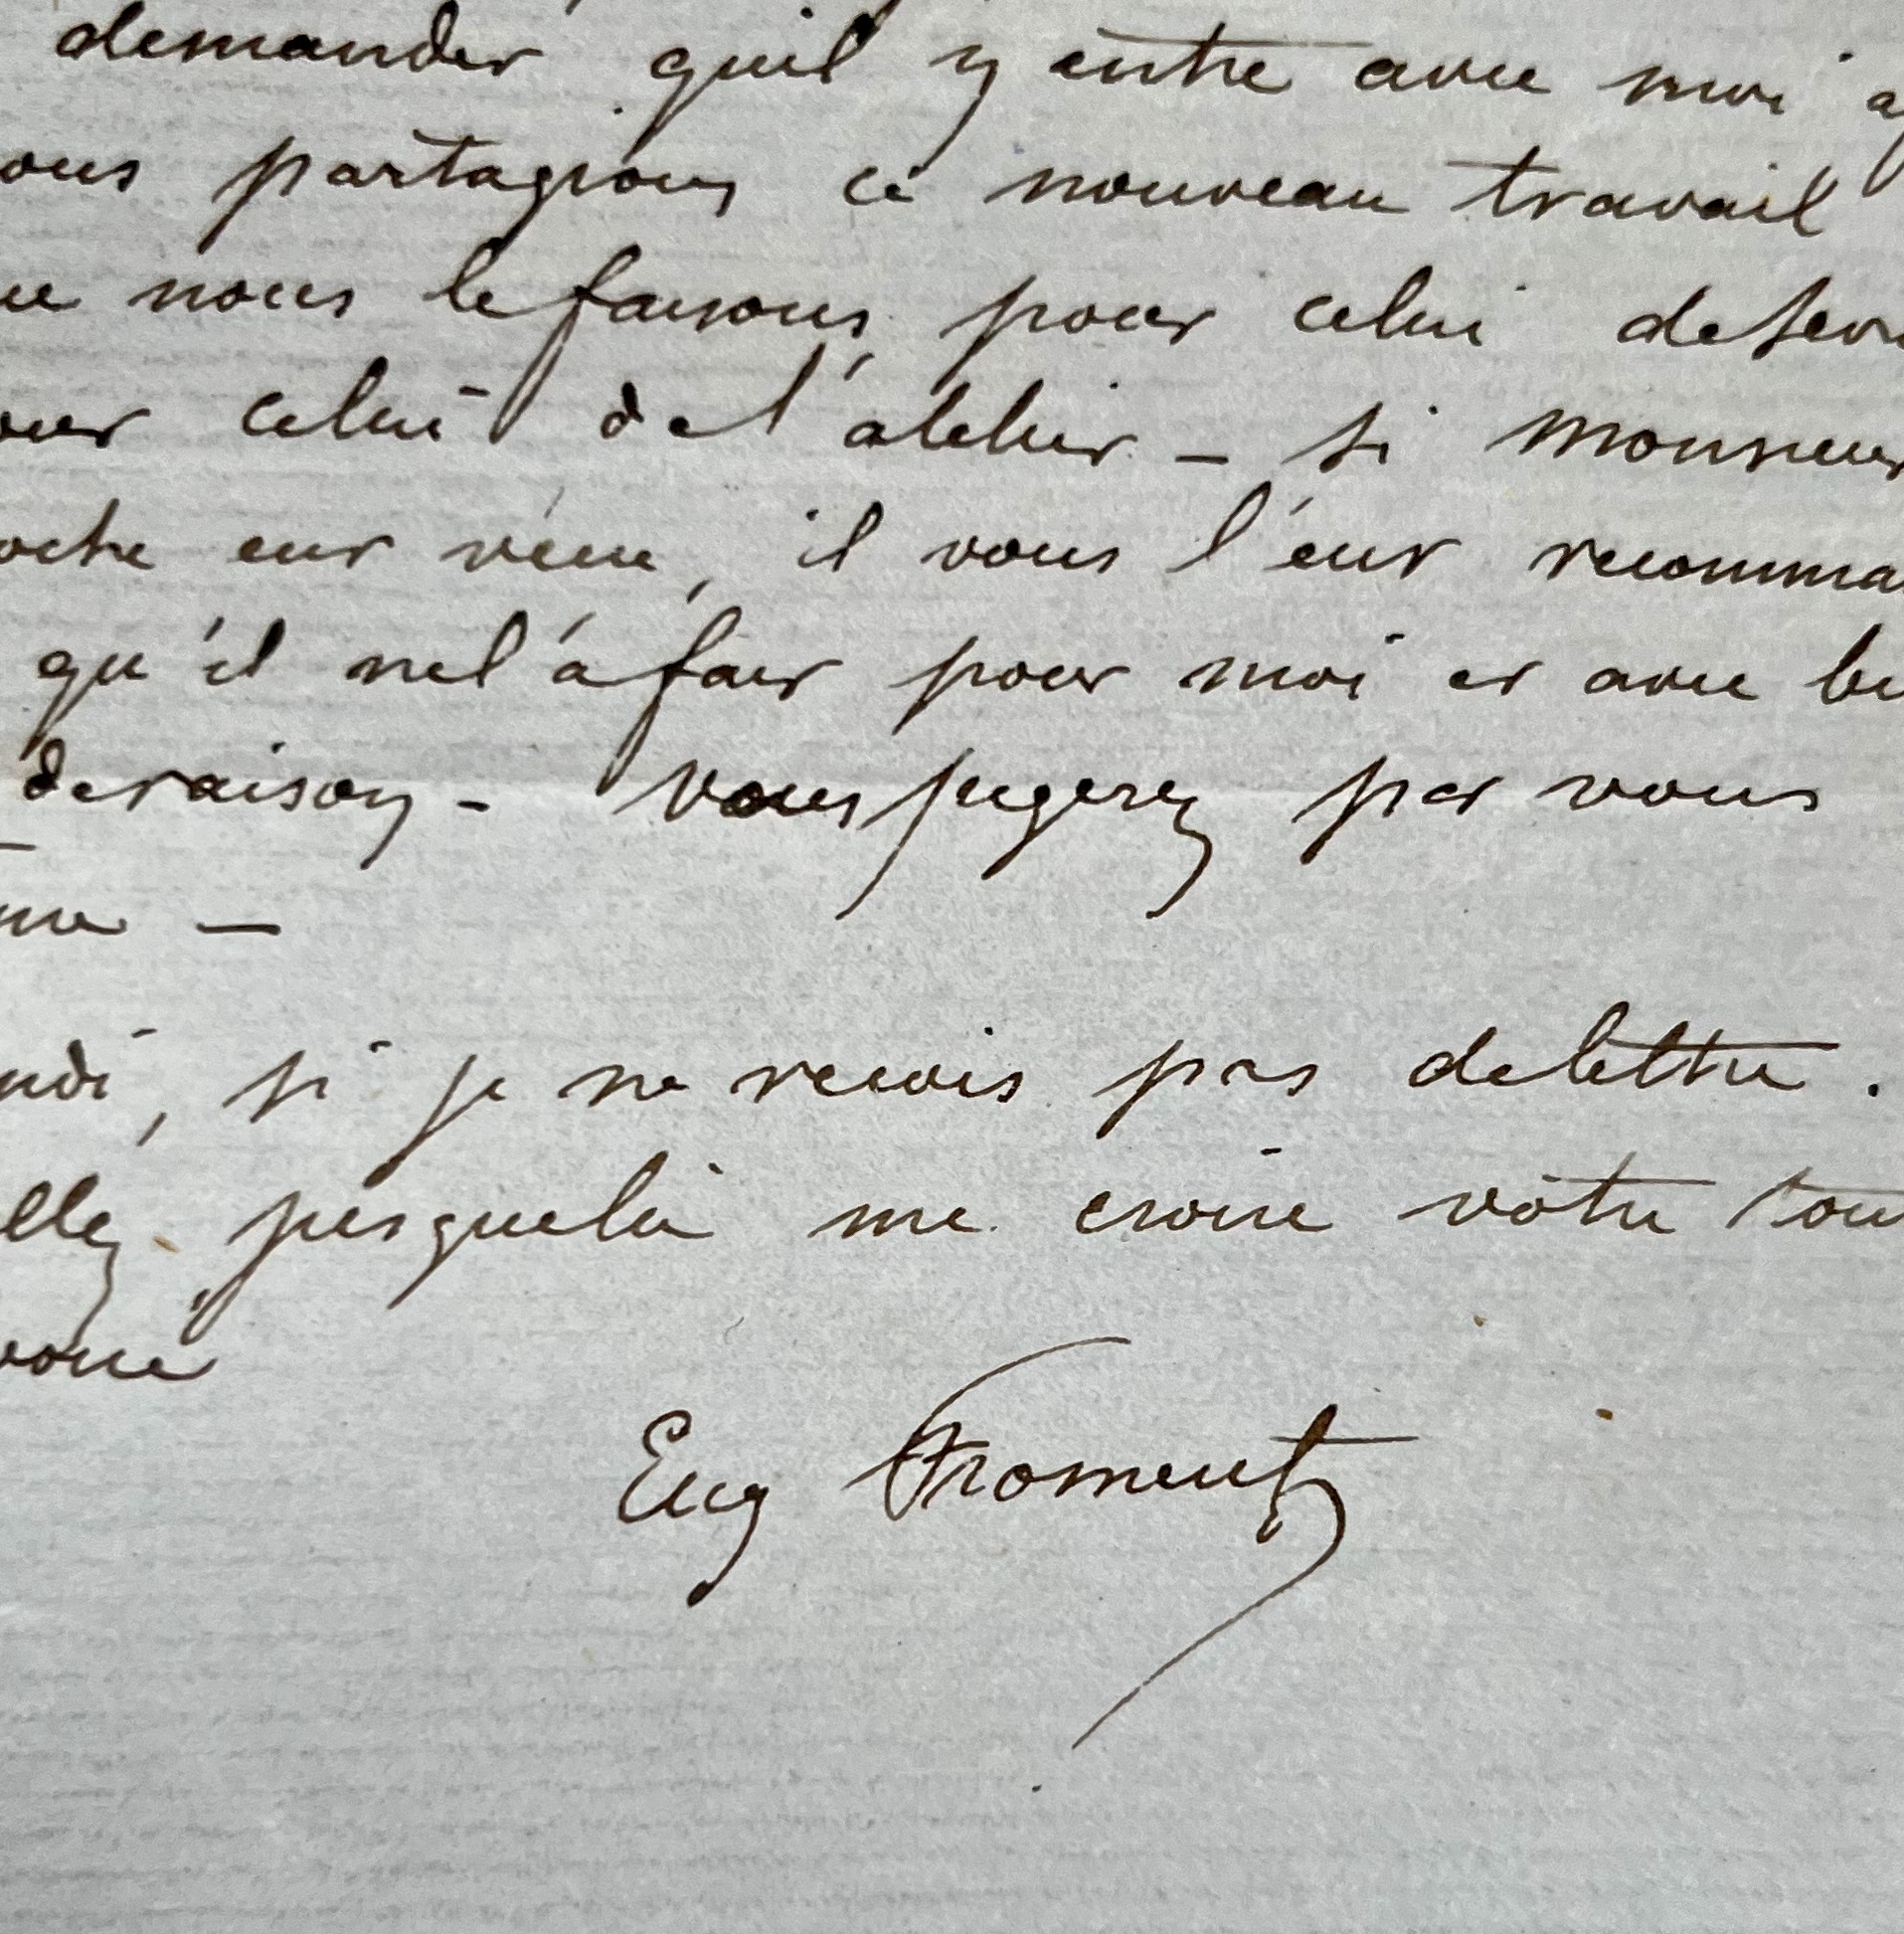 demander qu'il y entre avec moi af
ous partagions ce nouveau travail
ue nous le faisons, pour celui de Sev
our celui de l'atelier - si monsieur
oche eut vécu, il vous l'eut recomma
qu'il ne l'a fait pour moi et avec be
de raison - vous jugerez par vous
me —
ndi, si je ne recois pas de lettre.
llez jusque là me croire vôtre tou
voué
Eug Froment